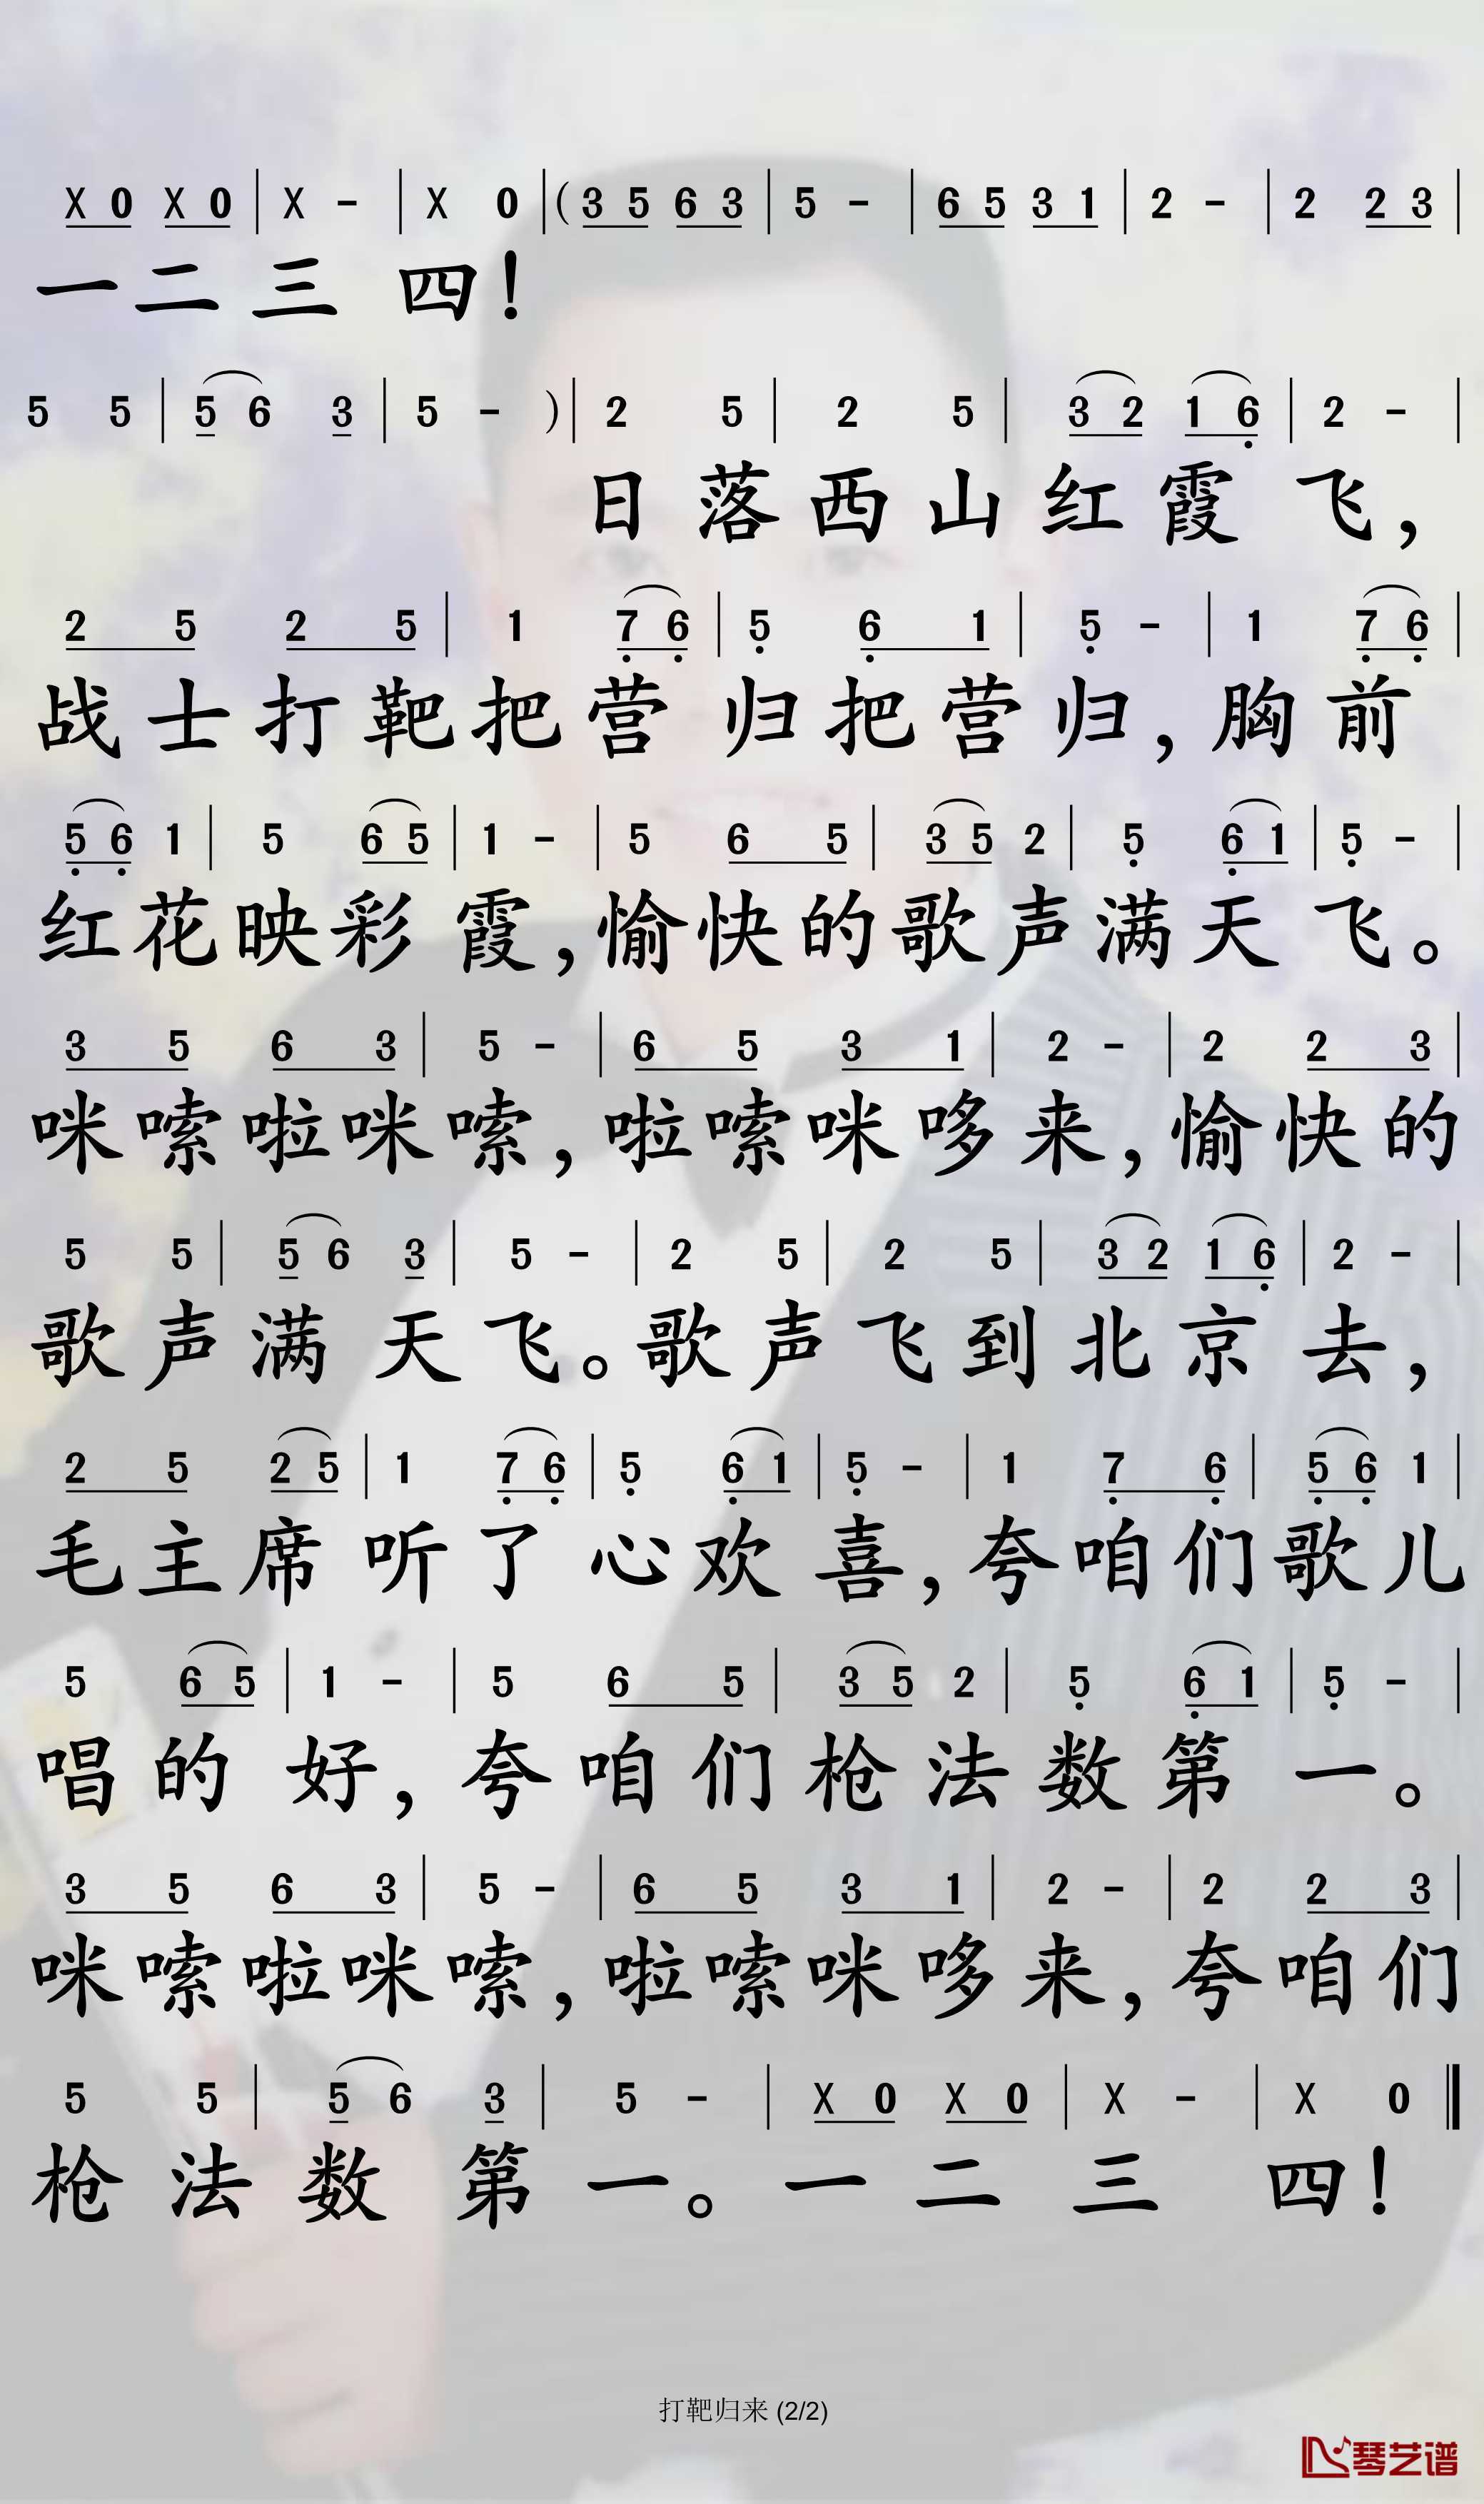 X 0 X 0 | X - | X 0 |( 3 5 6 3 | 5 - | 6 5 3 1 | 2 - | 2 2 3 |
一二三 四!
5 5 | 5 6 3 | 5 - )| 2 5 | 2 5 | 3 2 1 6 | 2 - |
日落西山红霞飞，
2 5 2 5 | 1 7 6 | 5 6 1 | 5 - | 1 7 6 |
战士打靶把营归把营归，胸前
5 6 1 | 5 6 5 | 1 - | 5 6 5 | 3 5 2 | 5 6 1 | 5 - |
红花映彩霞，愉快的歌声满天飞。
3 5 6 3 | 5 - | 6 5 3 1 | 2 - | 2 2 3 |
咪嗦啦咪嗦，啦嗦咪哆来，愉快的
5 5 | 5 6 3 | 5 - | 2 5 | 2 5 | 3 2 1 6 | 2 - |
歌声满天飞。歌声飞到北京去，
2 5 2 5 | 1 7 6 | 5 6 1 | 5 - | 1 7 6 | 5 6 1 |
毛主席听了心欢喜，夸咱们歌儿
5 6 5 | 1 - | 5 6 5 | 3 5 2 | 5 6 1 | 5 - |
唱的好，夸咱们枪法数第一。
3 5 6 3 | 5 - | 6 5 3 1 | 2 - | 2 2 3 |
咪嗦啦咪嗦，啦嗦咪哆来，夸咱们
5 5 | 5 6 3 | 5 - | X 0 X 0 | X - | X 0 ‖
枪法数第一。一二三四!
打靶归来 (2/2)
琴艺谱